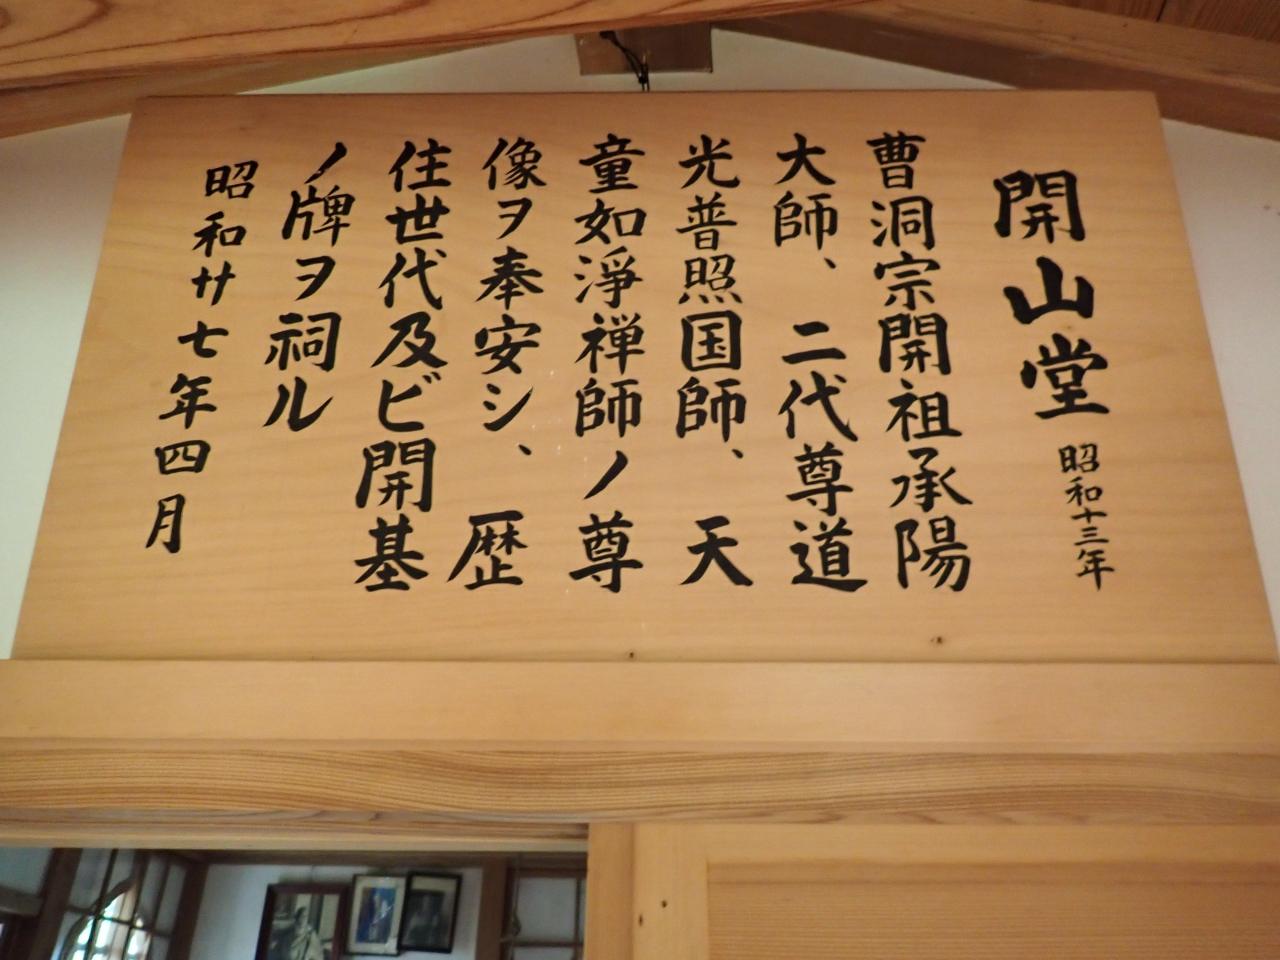 開山堂 昭和十三年
曹洞宗開祖承陽
大師、二代尊道
光普照国師、天
童如淨禅師ノ尊
像ヲ奉安シ、歴
住世代及ビ開基
ノ牌ヲ祠ル
昭和廿七年四月